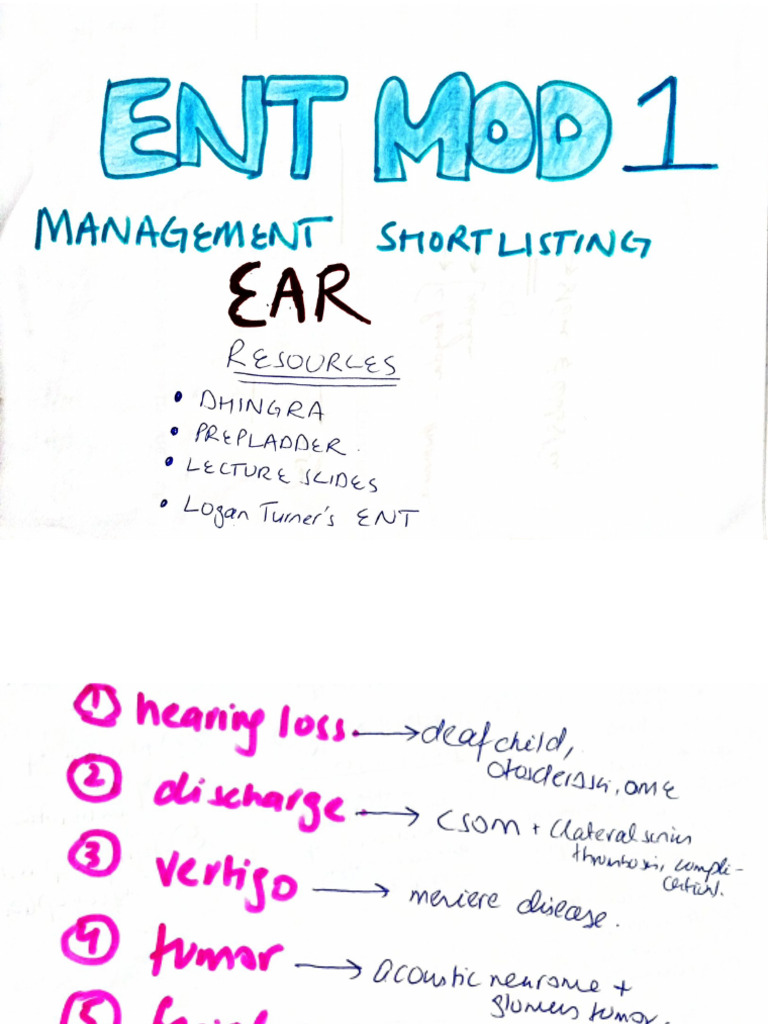 ENT MOD 1
MANAGEMENT SHORTLISTING
EAR
RESOURCES
• DHINGRA
• PREPLADDER.
• LECTURE SLIDES
• Logan Turner's ENT
① hearing loss. → deaf child,
otosclerosis, OME
② discharge → CSOM + (lateral sinus
thrombosis, compli-
cations).
③ vertigo → meniere disease.
④ tumor → acoustic neuroma +
glomus tumor.
⑤ facial